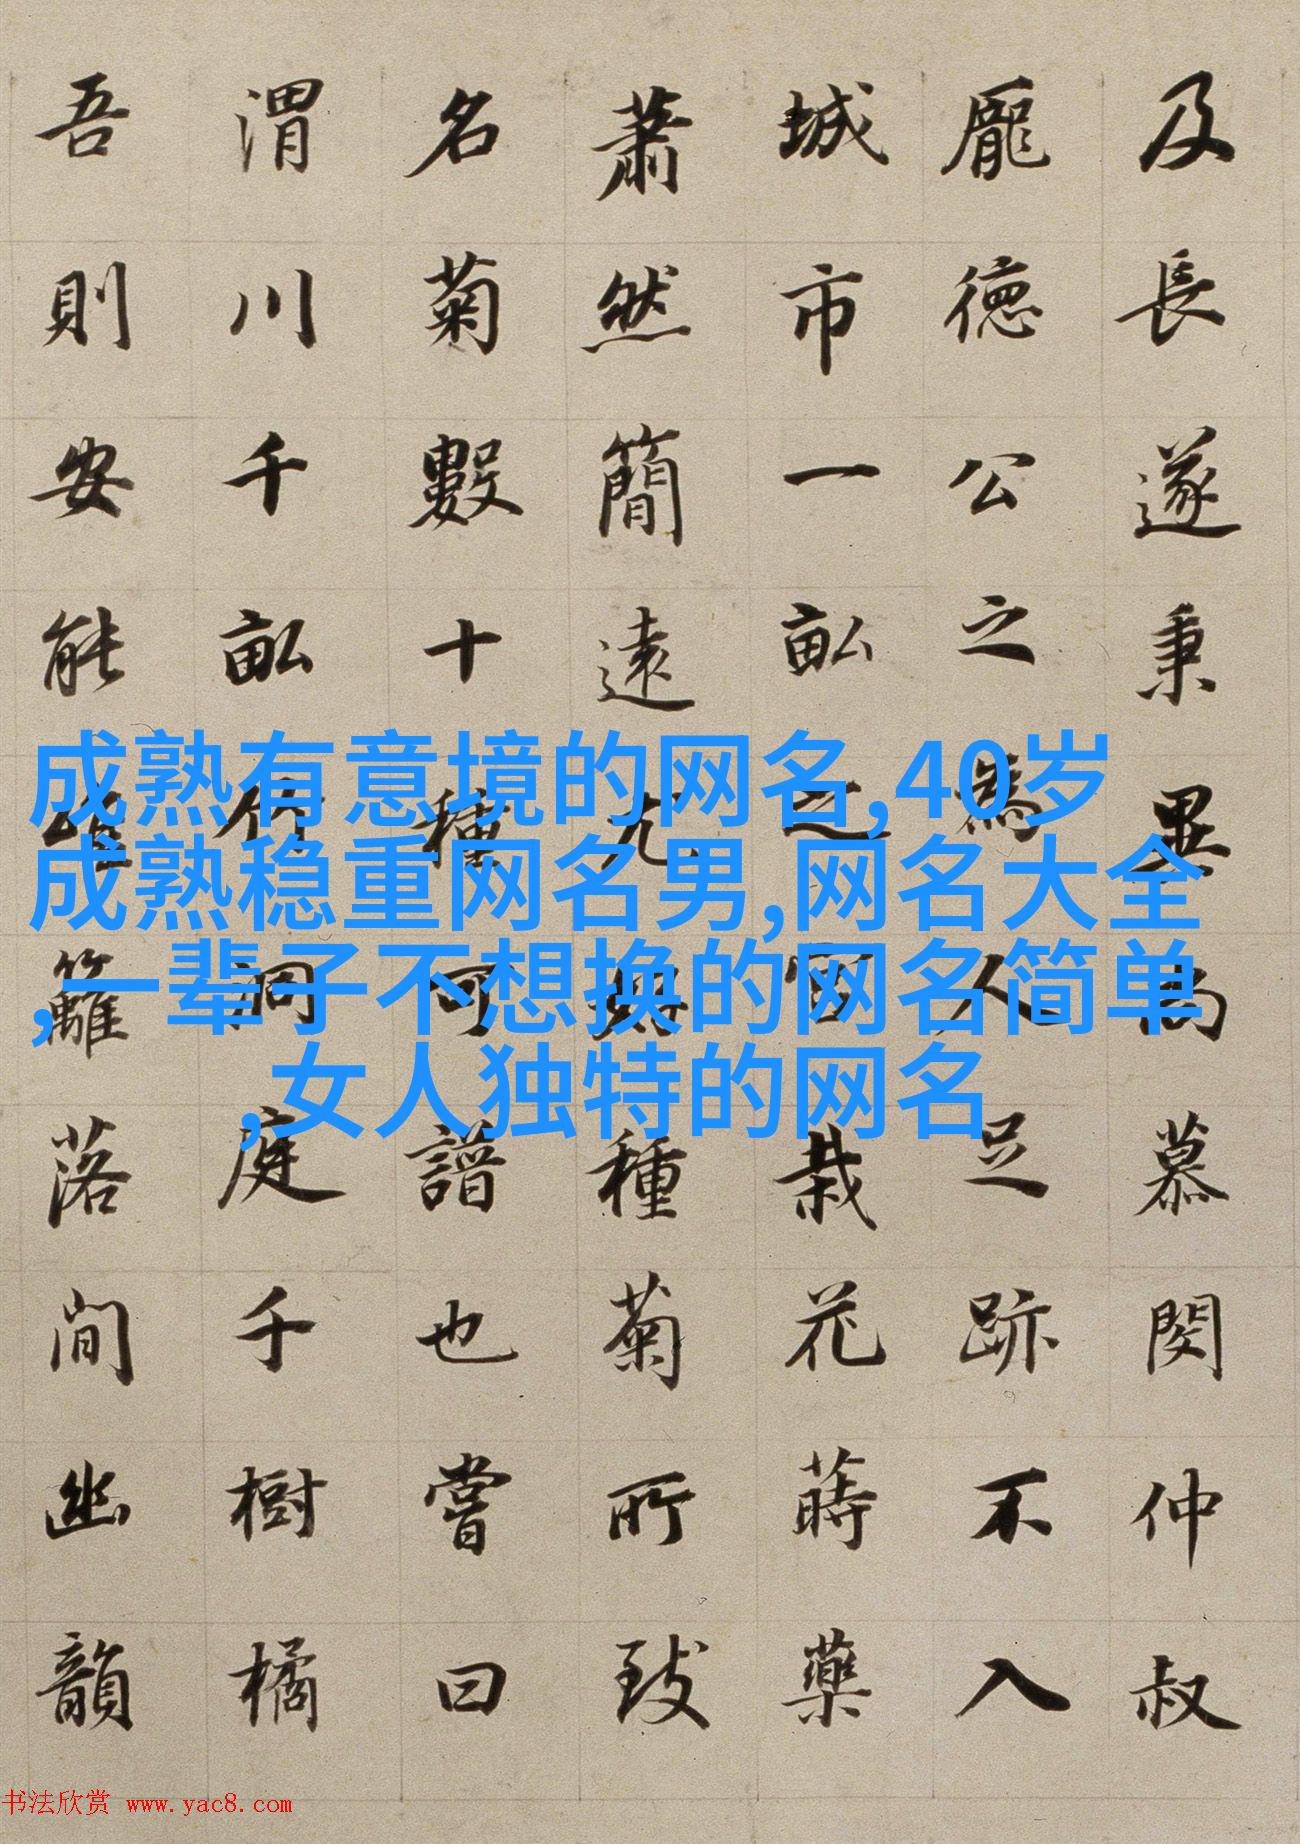 及長遂秉異尚慕閔仲叔
龐德公之為人足跡不入
城市一畝之宮栽花蒔藥
蕭然簡遠尤好種菊所致
名菊數十種可譜也嘗曰
渭川千畝竹洞庭千樹橘
吾則安能唯籬落間幽韻
成熟有意境的网名,40岁
成熟稳重网名男,网名大全
,一辈子不想换的网名简单
,女人独特的网名
书法欣赏 www.yac8.com